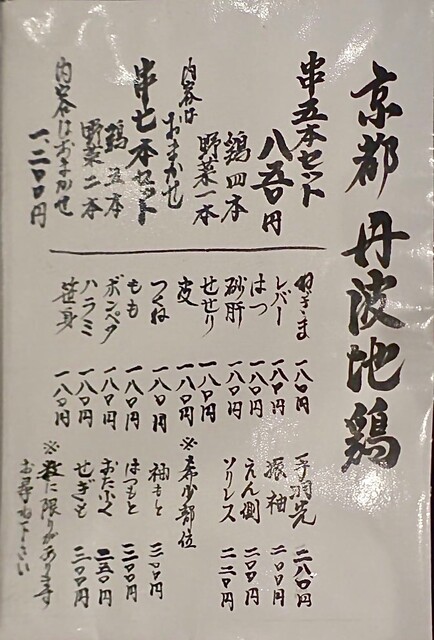 京都 丹波地鶏
串五本セット
八五〇円
鶏四本
野菜一本
内容はおまかせ
串七本セット
鶏五本
野菜二本
内容はおまかせ
一、二〇〇円
ねぎま 一八〇円
レバー 一八〇円
はつ 一八〇円
砂肝 一八〇円
せせり 一八〇円
皮 一八〇円
つくね 一八〇円
もも 一八〇円
ボンペタ 一八〇円
ハラミ 一八〇円
笹身 一八〇円
手羽先 二八〇円
振袖 二〇〇円
えん側 二〇〇円
ソリレス 二二〇円
※希少部位
袖もと 三〇〇円
はつもと 二〇〇円
おたふく 二五〇円
せぎも 二〇〇円
※数に限りがあります
お尋ね下さい